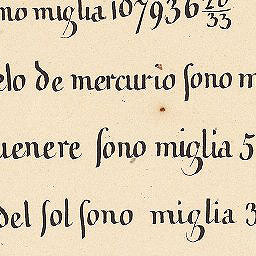 no miglia 107936 20/33
elo de mercurio sono m
uenere sono miglia 5
del sol sono miglia 3